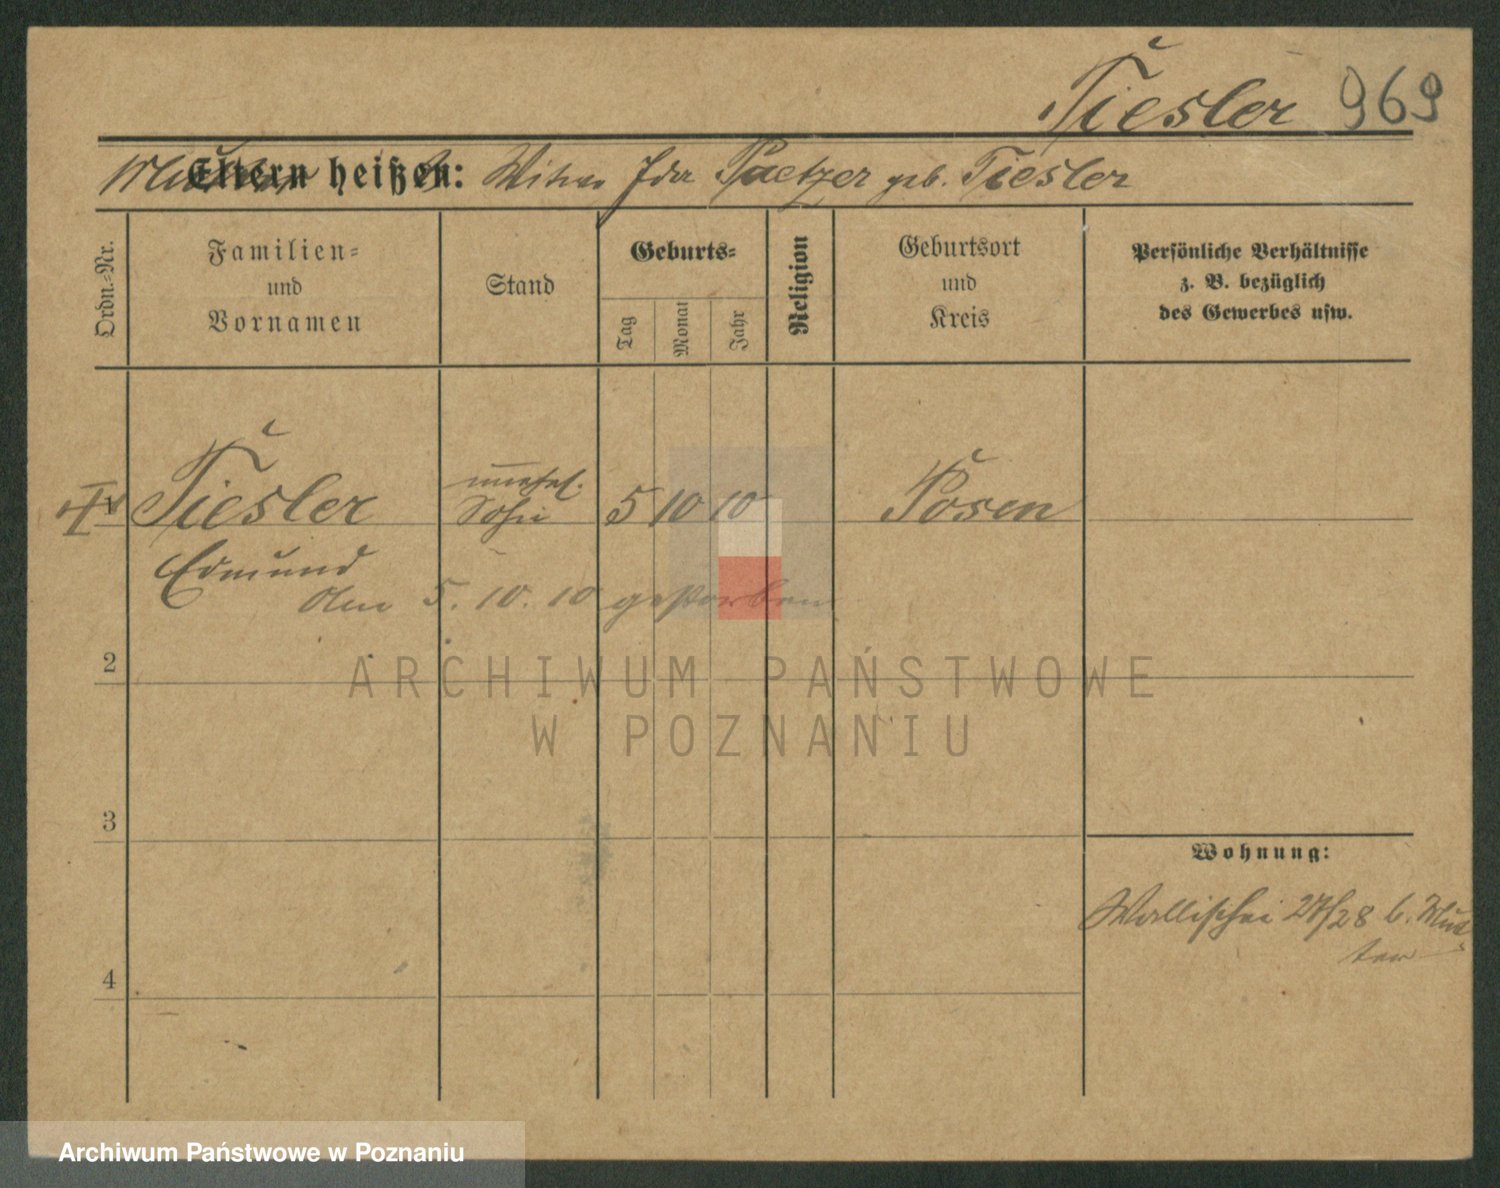 Tiesler 969
Mutter
Eltern heißen: Witwe Ida Paetzer geb. Tiesler
Ordn.-Nr.
Familien-
und
Vornamen
Stand
Geburts-
Tag
Monat
Jahr
Religion
Geburtsort
und
Kreis
Persönliche Verhältnisse
z. B. bezüglich
des Gewerbes usw.
1 Tiesler unehel. Sohn 5 10 10 Posen
Edmund
den 5. 10. 10 gestorben
2
3
4
Wohnung:
Wallischei 27/28 b. Mut-
ter
ARCHIWUM PAŃSTWOWE
W POZNANIU
Archiwum Państwowe w Poznaniu